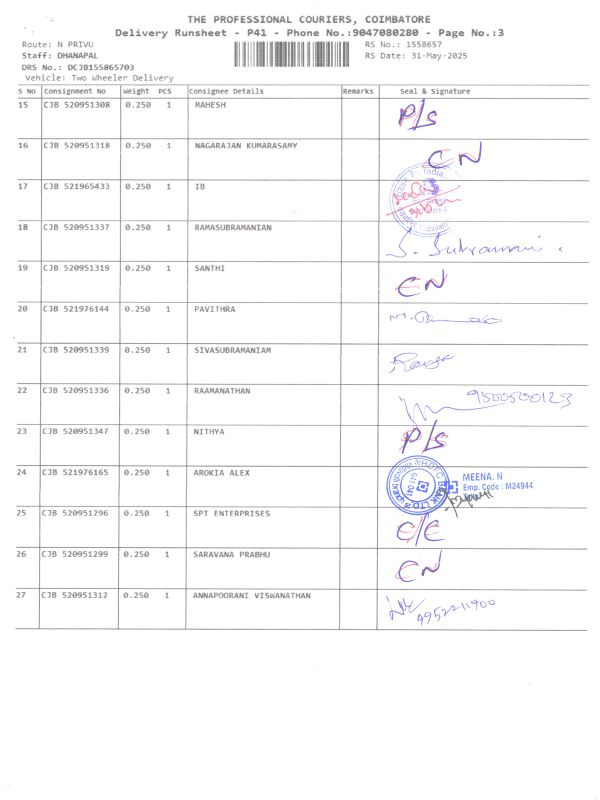 THE PROFESSIONAL COURIERS, COIMBATORE
Delivery Runsheet - P41 - Phone No.:9047080280 - Page No.:3
Route: N PRIVU RS No.: 1558657
Staff: DHANAPAL RS Date: 31-May-2025
DRS No.: DCJB155865703
Vehicle: Two Wheeler Delivery
S No Consignment No Weight PCS Consignee Details Remarks Seal & Signature
15 CJB 520951308 0.250 1 MAHESH P/S
16 CJB 520951318 0.250 1 NAGARAJAN KUMARASAMY CN
17 CJB 521965433 0.250 1 IB
18 CJB 520951337 0.250 1 RAMASUBRAMANIAN S. Subramani.
19 CJB 520951319 0.250 1 SANTHI CN
20 CJB 521976144 0.250 1 PAVITHRA
21 CJB 520951339 0.250 1 SIVASUBRAMANIAM
22 CJB 520951336 0.250 1 RAAMANATHAN 9500500123
23 CJB 520951347 0.250 1 NITHYA P/S
24 CJB 521976165 0.250 1 AROKIA ALEX HDFC BANK LTD 641 041 MEENA. N
Emp. Code : M24944
25 CJB 520951296 0.250 1 SPT ENTERPRISES C/C
26 CJB 520951299 0.250 1 SARAVANA PRABHU CN
27 CJB 520951312 0.250 1 ANNAPOORANI VISWANATHAN 9952211900